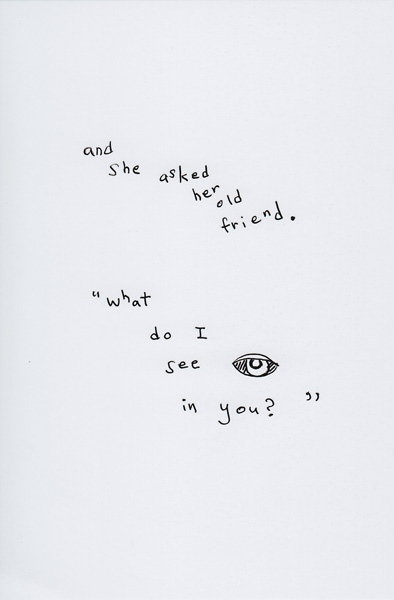 and
she asked
her old
friend.
"what
do I
see
in you?"